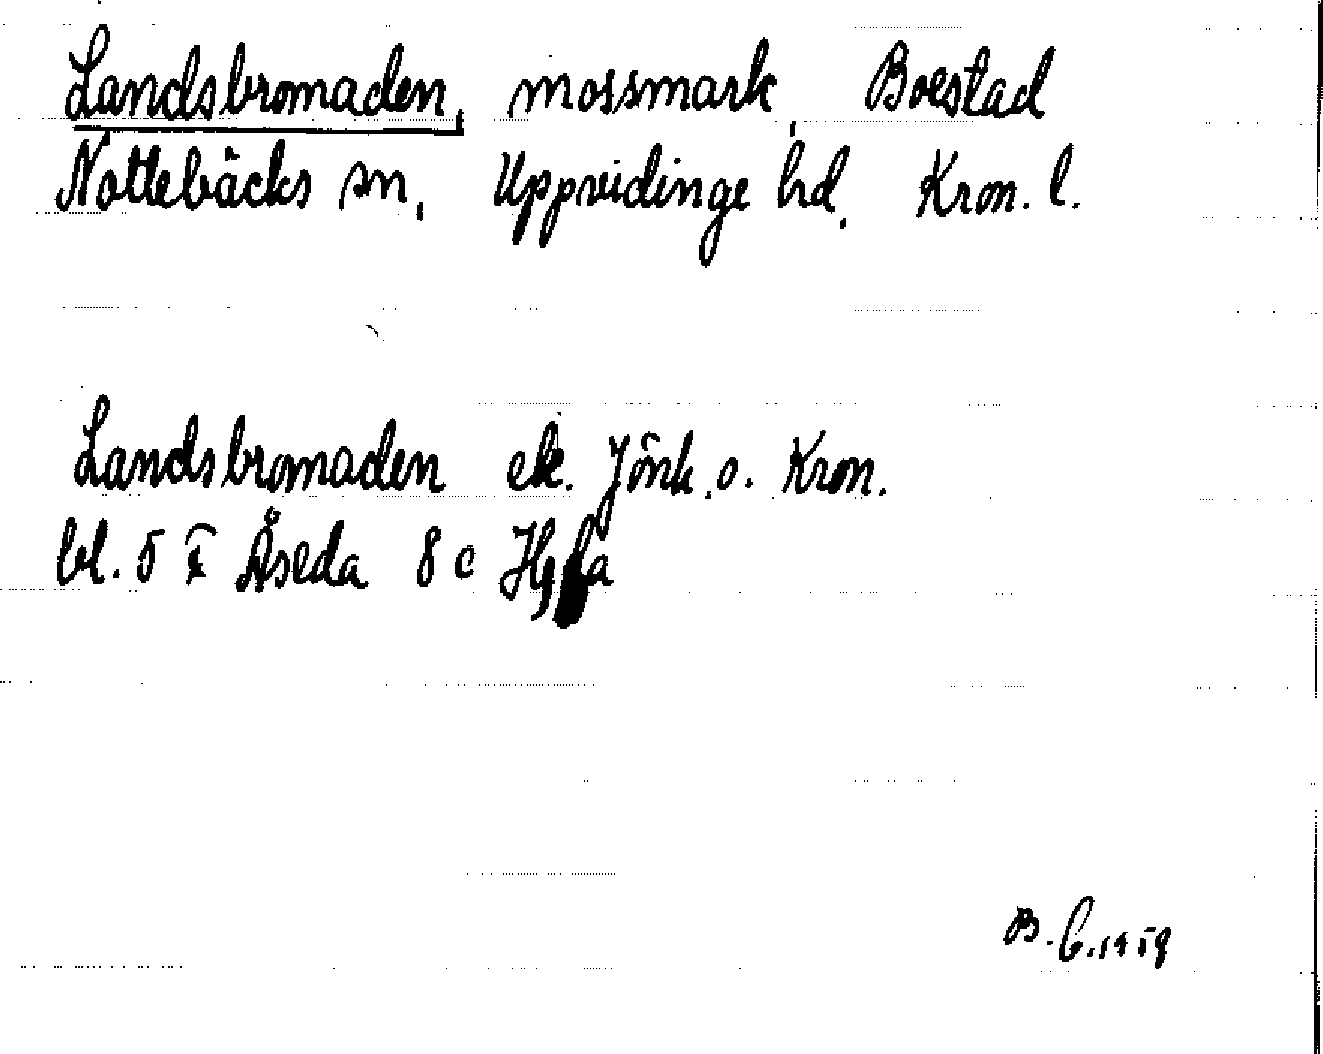 Landsbromaden, mossmark, Boestad
Nottebäcks sn, Uppvidinge hd. Kron. l.
Landsbromaden ek. Jönk. o. Kron.
bl. 5 Åseda 8 c
B. 1959